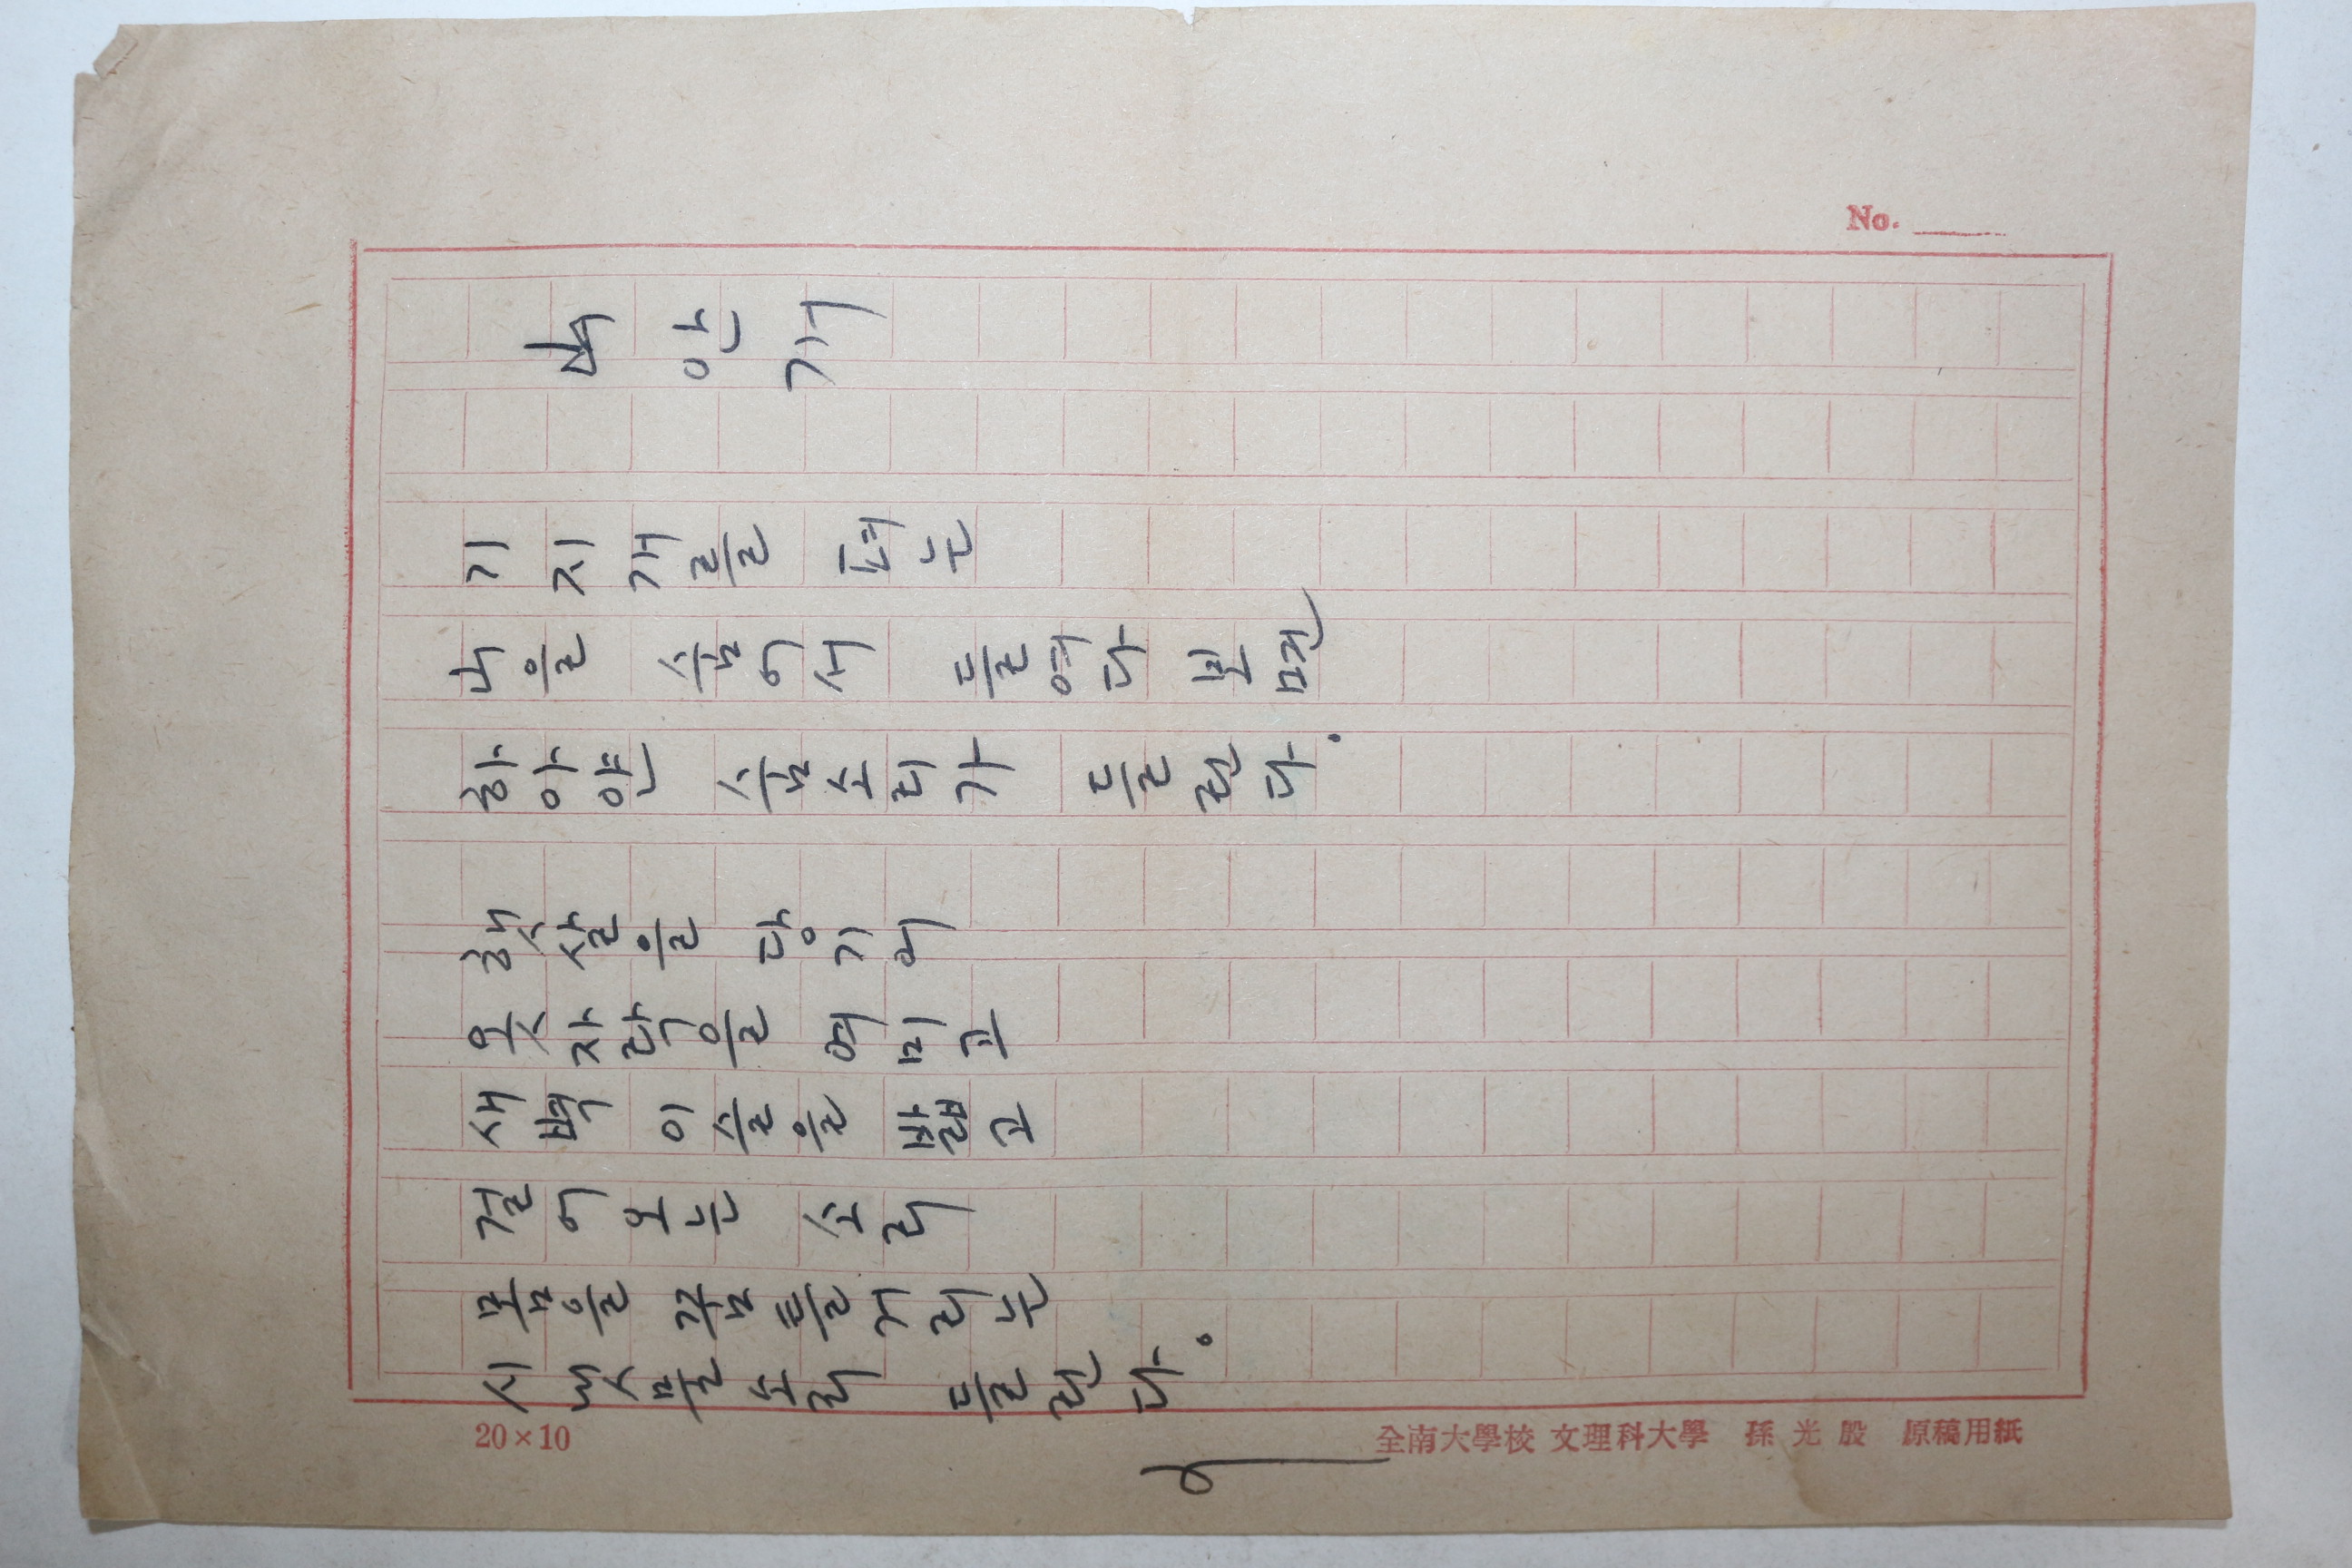 No.
山 안개
기지개를 펴는
山을 숨어서 들여다 보면
하아얀 숨소리가 들린다.
햇살을 당기어
옷자락을 여미고
새벽 이슬을 밟고
걸어오는 소리
몸을 꿈틀거리는
시냇물소리 들린다.
20×10
全南大學校 文理科大學 孫光殷 原稿用紙